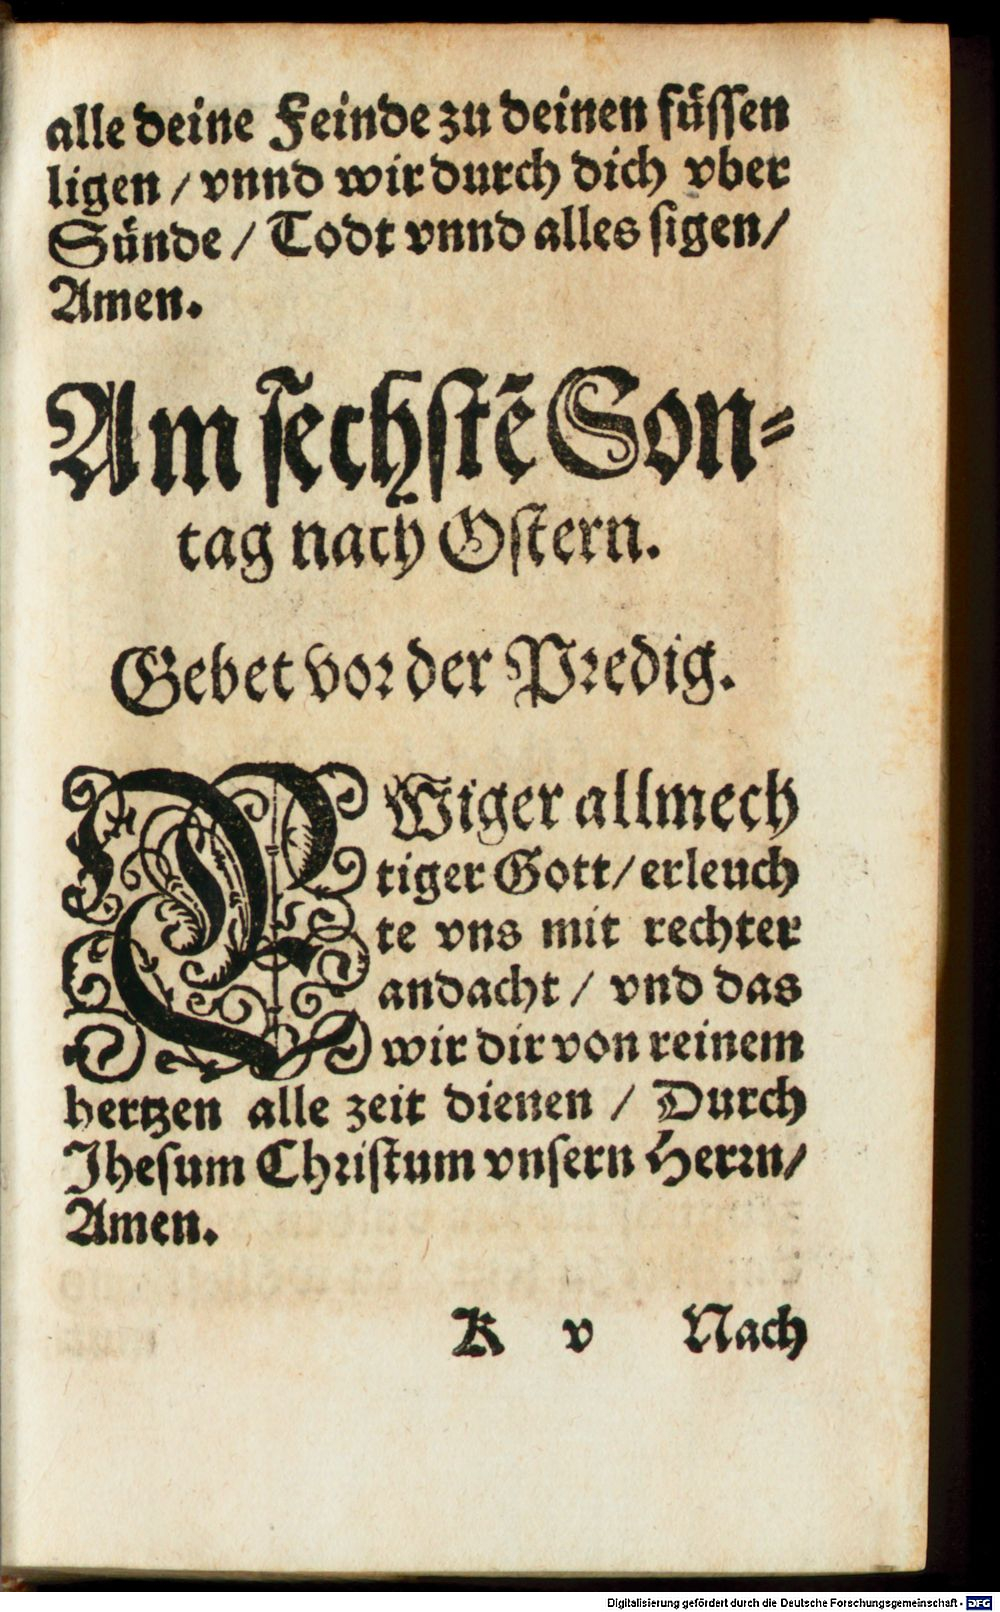 alle deine Feinde zu deinen füssen
ligen / vnnd wir durch dich vber
Sünde / Todt vnnd alles sigen /
Amen.
Am sechstē Son-
tag nach Ostern.
Gebet vor der Predig.
EWiger allmech
tiger Gott / erleuch
te vns mit rechter
andacht / vnd das
wir dir von reinem
hertzen alle zeit dienen / Durch
Jhesum Christum vnsern Herrn /
Amen.
K v Nach
Digitalisierung gefördert durch die Deutsche Forschungsgemeinschaft - DFG